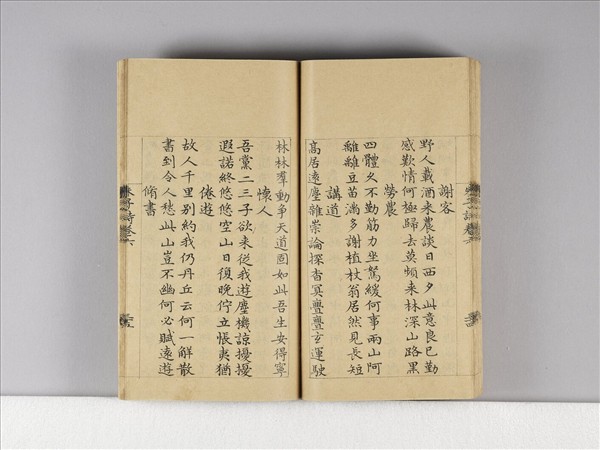 朱子詩卷六
謝客
野人載酒来農談日西夕此意良已勤
感歎情何極歸去莫頻来林深山路黑
勞農
四體久不勤筋力坐駑緩何事兩山阿
離離豆苗滿多謝植杖翁居然見長短
講道
高居遠塵雜崇論探杳冥亹亹玄運駛
林林羣動爭天道固如此吾生安得寧
懷人
吾黨二三子欲来從我遊塵機諒擾擾
遐諾終悠悠空山日復晚佇立悵夷猶
倦遊
故人千里別約我仍丹丘云何一解散
書到令人愁此山豈不幽何必賦遠遊
脩書
朱子詩卷六